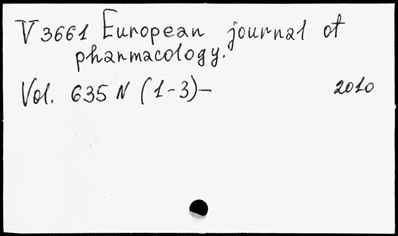 V 3661 European journal of
pharmacology.
Vol. 635 N (1-3)- 2010